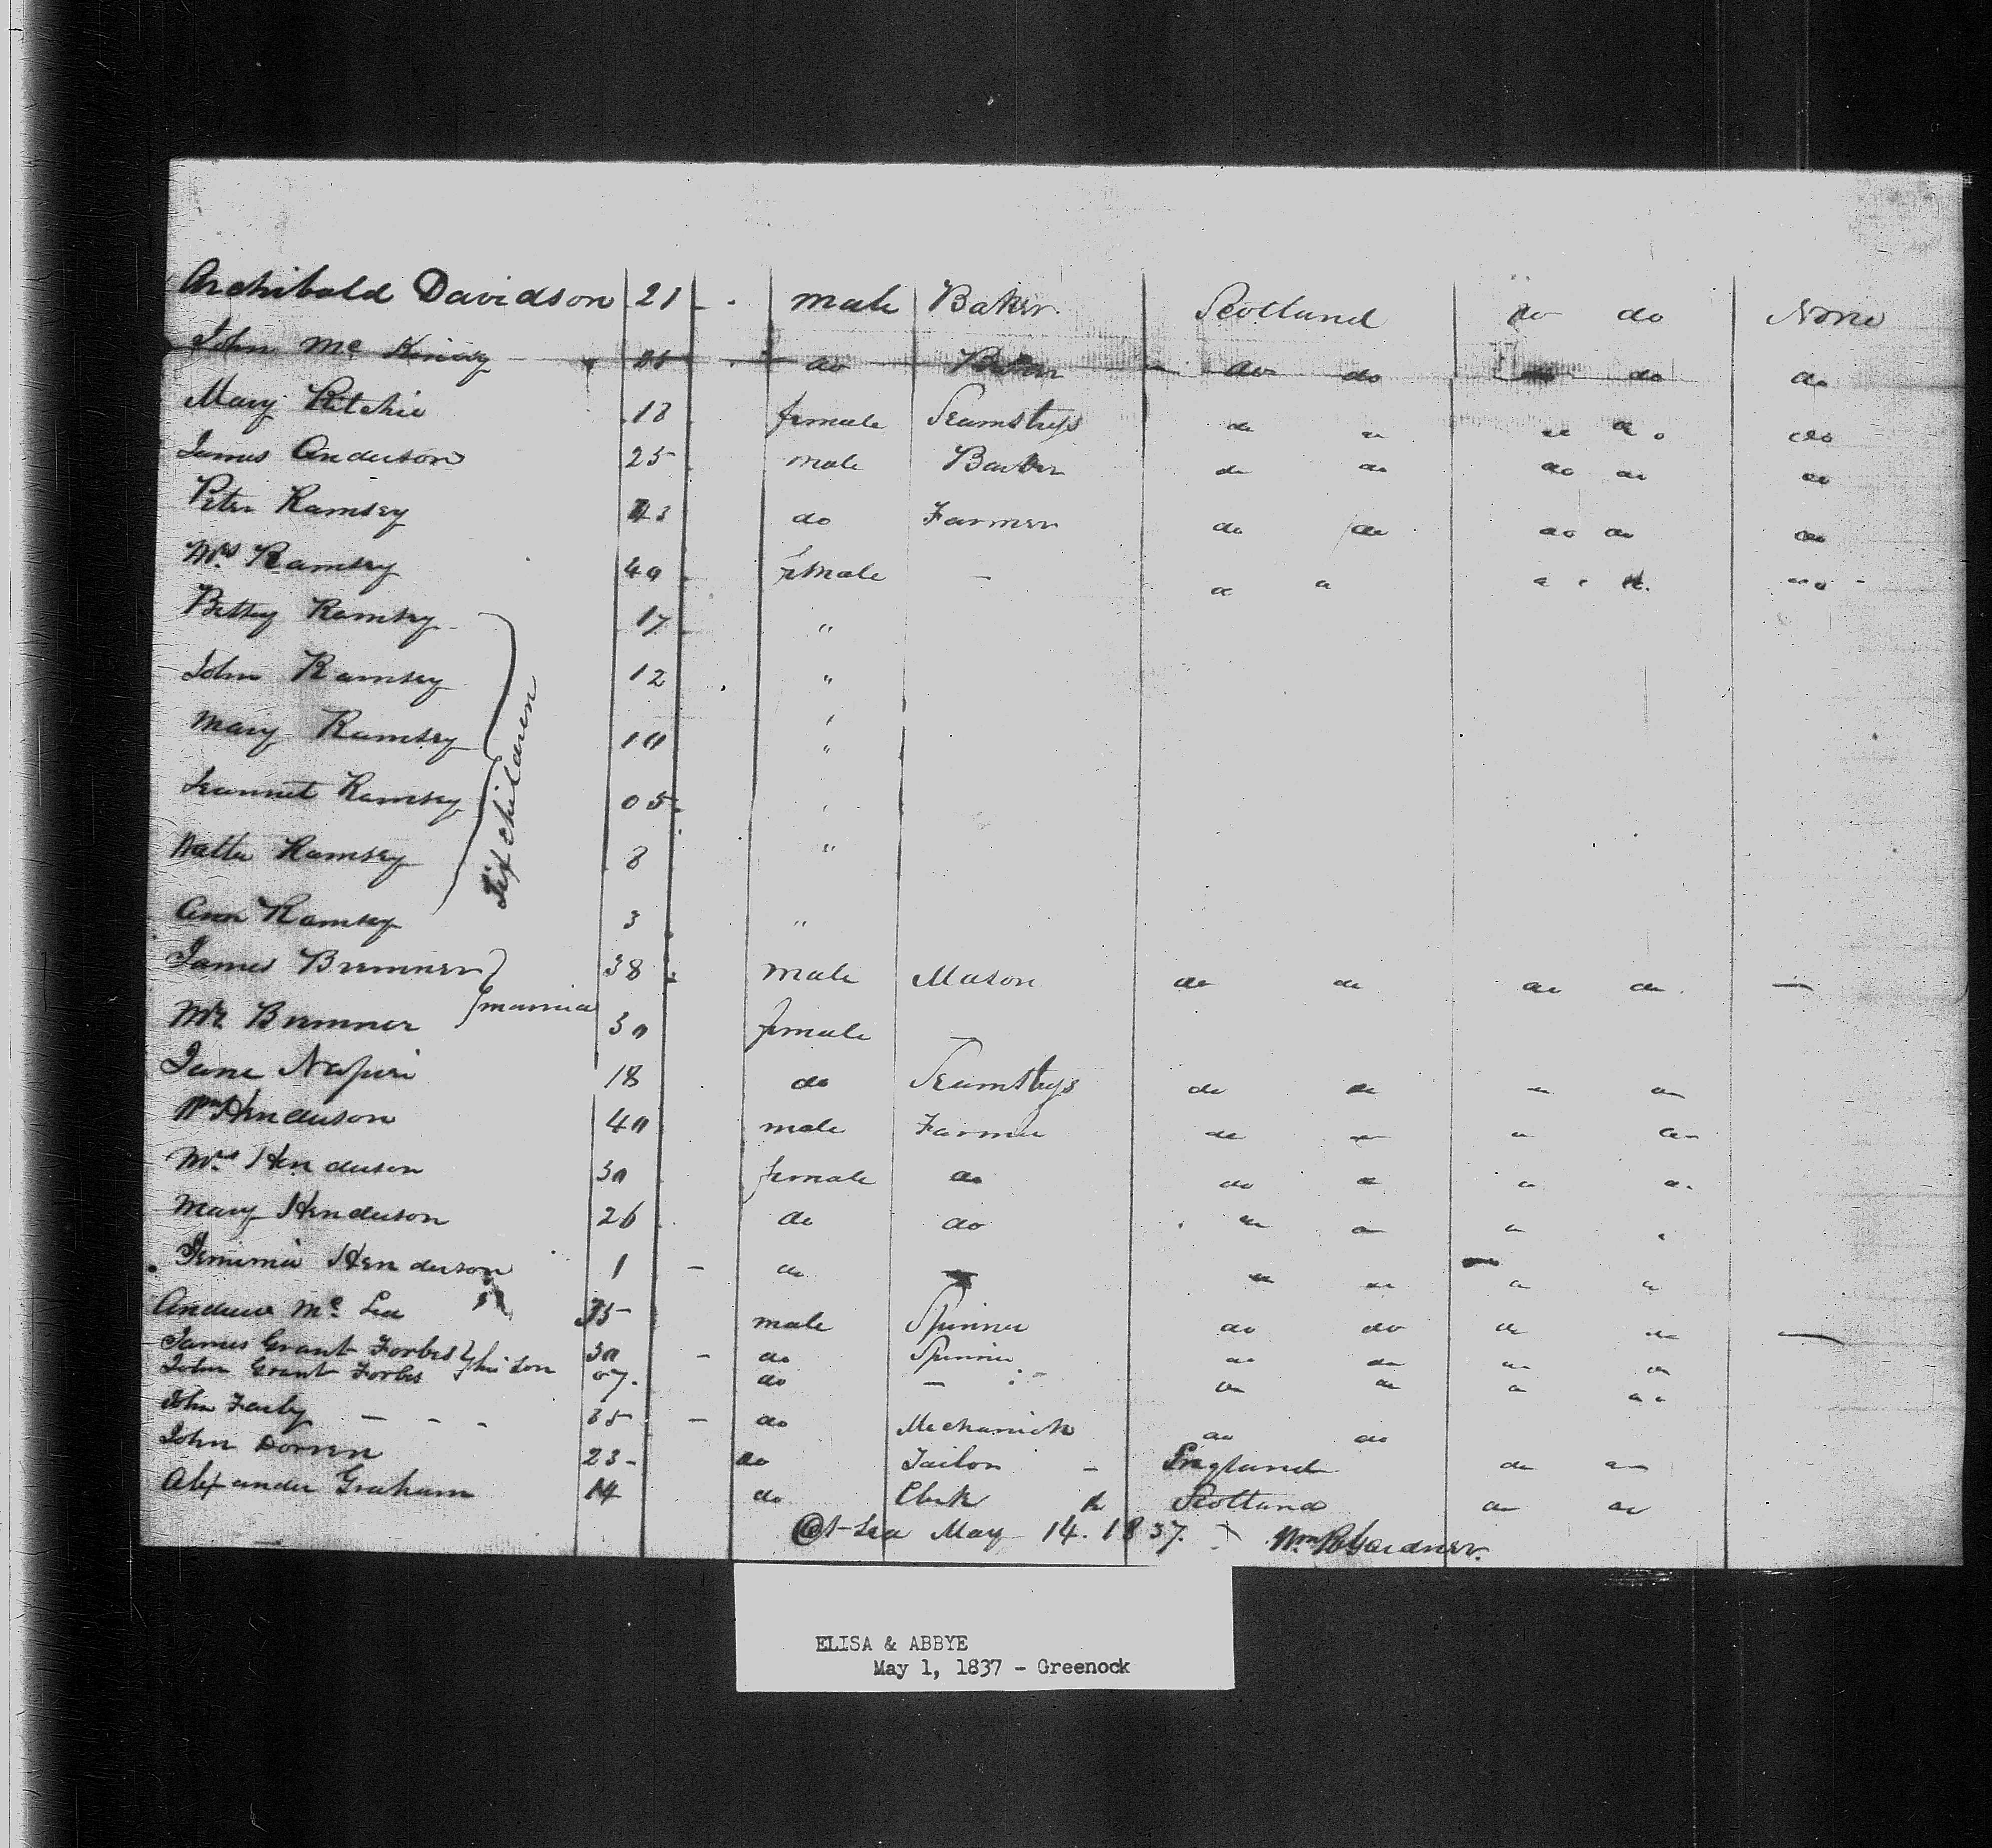 Archibald Davidson 21 - . male Baker. Scotland do do None
John Mc do do do do do
Mary Ritchie 18 female Seamstress do do do do do
James Anderson 25 male Baker do do do do do
Peter Ramsey do Farmer do do do do do
Mrs Ramsey 40 female -
Betsey Ramsey 17 "
John Ramsey 12 "
Mary Ramsey 10 "
Jeannet Ramsey 05
Walter Ramsey 8 "
Ann Ramsey 3 "
Six children
James Bremner 38 male Mason do do do do —
married
Mrs Bremner 30 female —
Jane Napier 18 do Seamstress do do
Wm Henderson 40 male Farmer do do
Mrs Henderson 30 female do do do
Mary Henderson 26 do do
Jemima Henderson 1 - do
Andrew Mc Lea male Spinner do do do do —
James Grant Forbes 30 - do Spinner do do
his son
John Grant Forbes 07. do —
John - - - 35 - do Mechanick do do
John 23 - do Tailor - England do do
Alexander Graham 14 do Clerk Scotland do do
At Sea May 14. 1837. Wm R Gardner.
ELISA & ABBYE
May 1, 1837 - Greenock